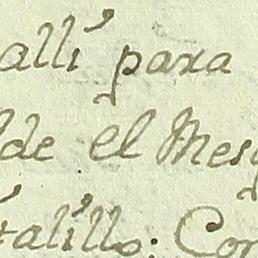 alli para
lde el Mes
talillo: Con